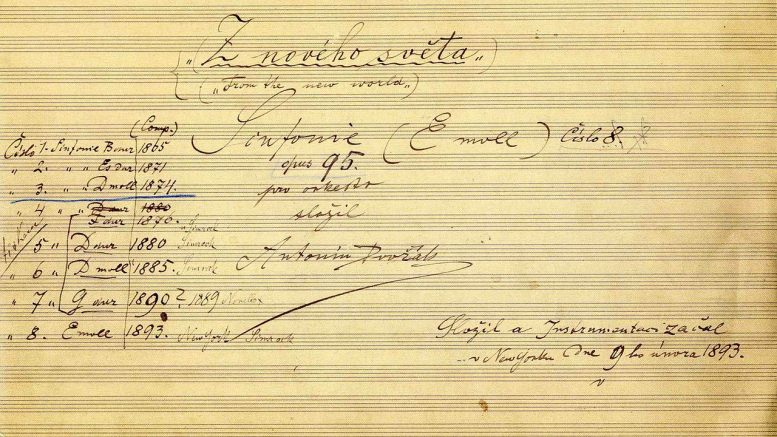 „Z nového světa„
(„From the new world„)
Sinfonie (E moll) Číslo 8.
opus 95.
pro orkestr
složil
Antonín Dvořák
(Comp.)
Číslo 1. Sinfonie B dur 1865
„ 2. „ Es dur 1871
„ 3. „ D moll 1874.
„ 4 „ D dur 1880
F dur 1876. Simrock
„ 5 „ D dur 1880 Simrock
„ 6 „ D moll 1885. Simrock
„ 7 „ G dur 1890? 1889 Novello
„ 8. E moll 1893. New York Simrock
Složil a Instrumentaci začal
v New Yorku dne 9ho února 1893.